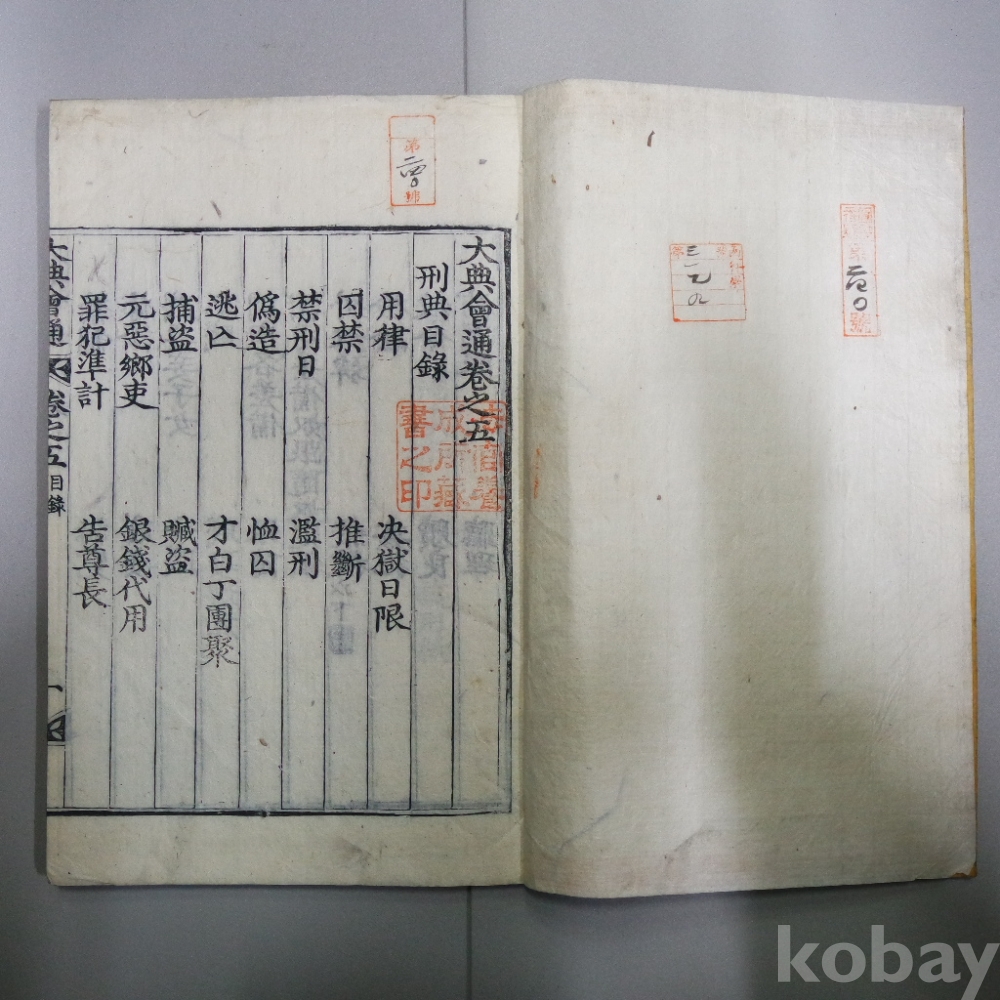 大典會通卷之五
刑典目錄
用律 决獄日限
囚禁 推斷
禁刑日 濫刑
僞造 恤囚
逃亡 才白丁團聚
捕盜 贓盜
元惡鄉吏 銀錢代用
罪犯準計 告尊長
大典會通 卷之五 目錄 一
第 號
書之印
kobay